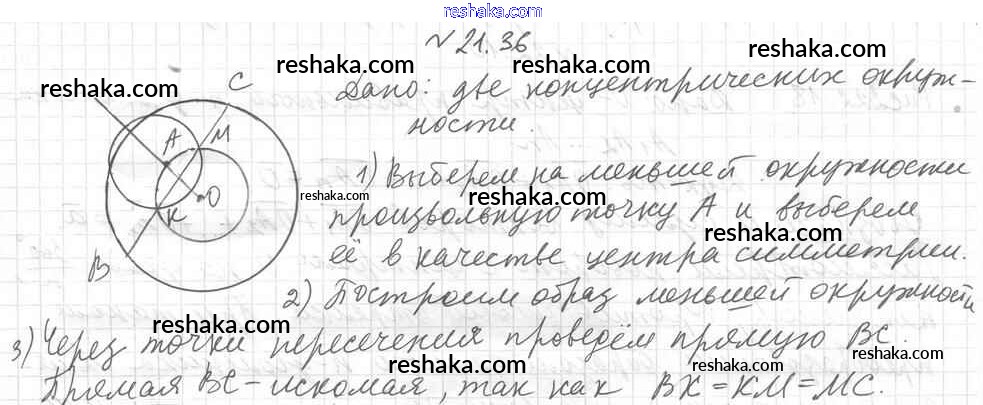 reshaka.com
№ 21.36
reshaka.com
reshaka.com reshaka.com reshaka.com
C Дано: две концентрических окруж-
ности.
A M
1) Выберем на меньшей окружности
reshaka.com
O произвольную точку А и выберем
K reshaka.com
B её в качестве центра симметрии.
2) Построим образ меньшей окружности
reshaka.com
3) Через точки пересечения проведём прямую ВС.
reshaka.com reshaka.com
Прямая ВС - искомая, так как ВК = КМ = МС.